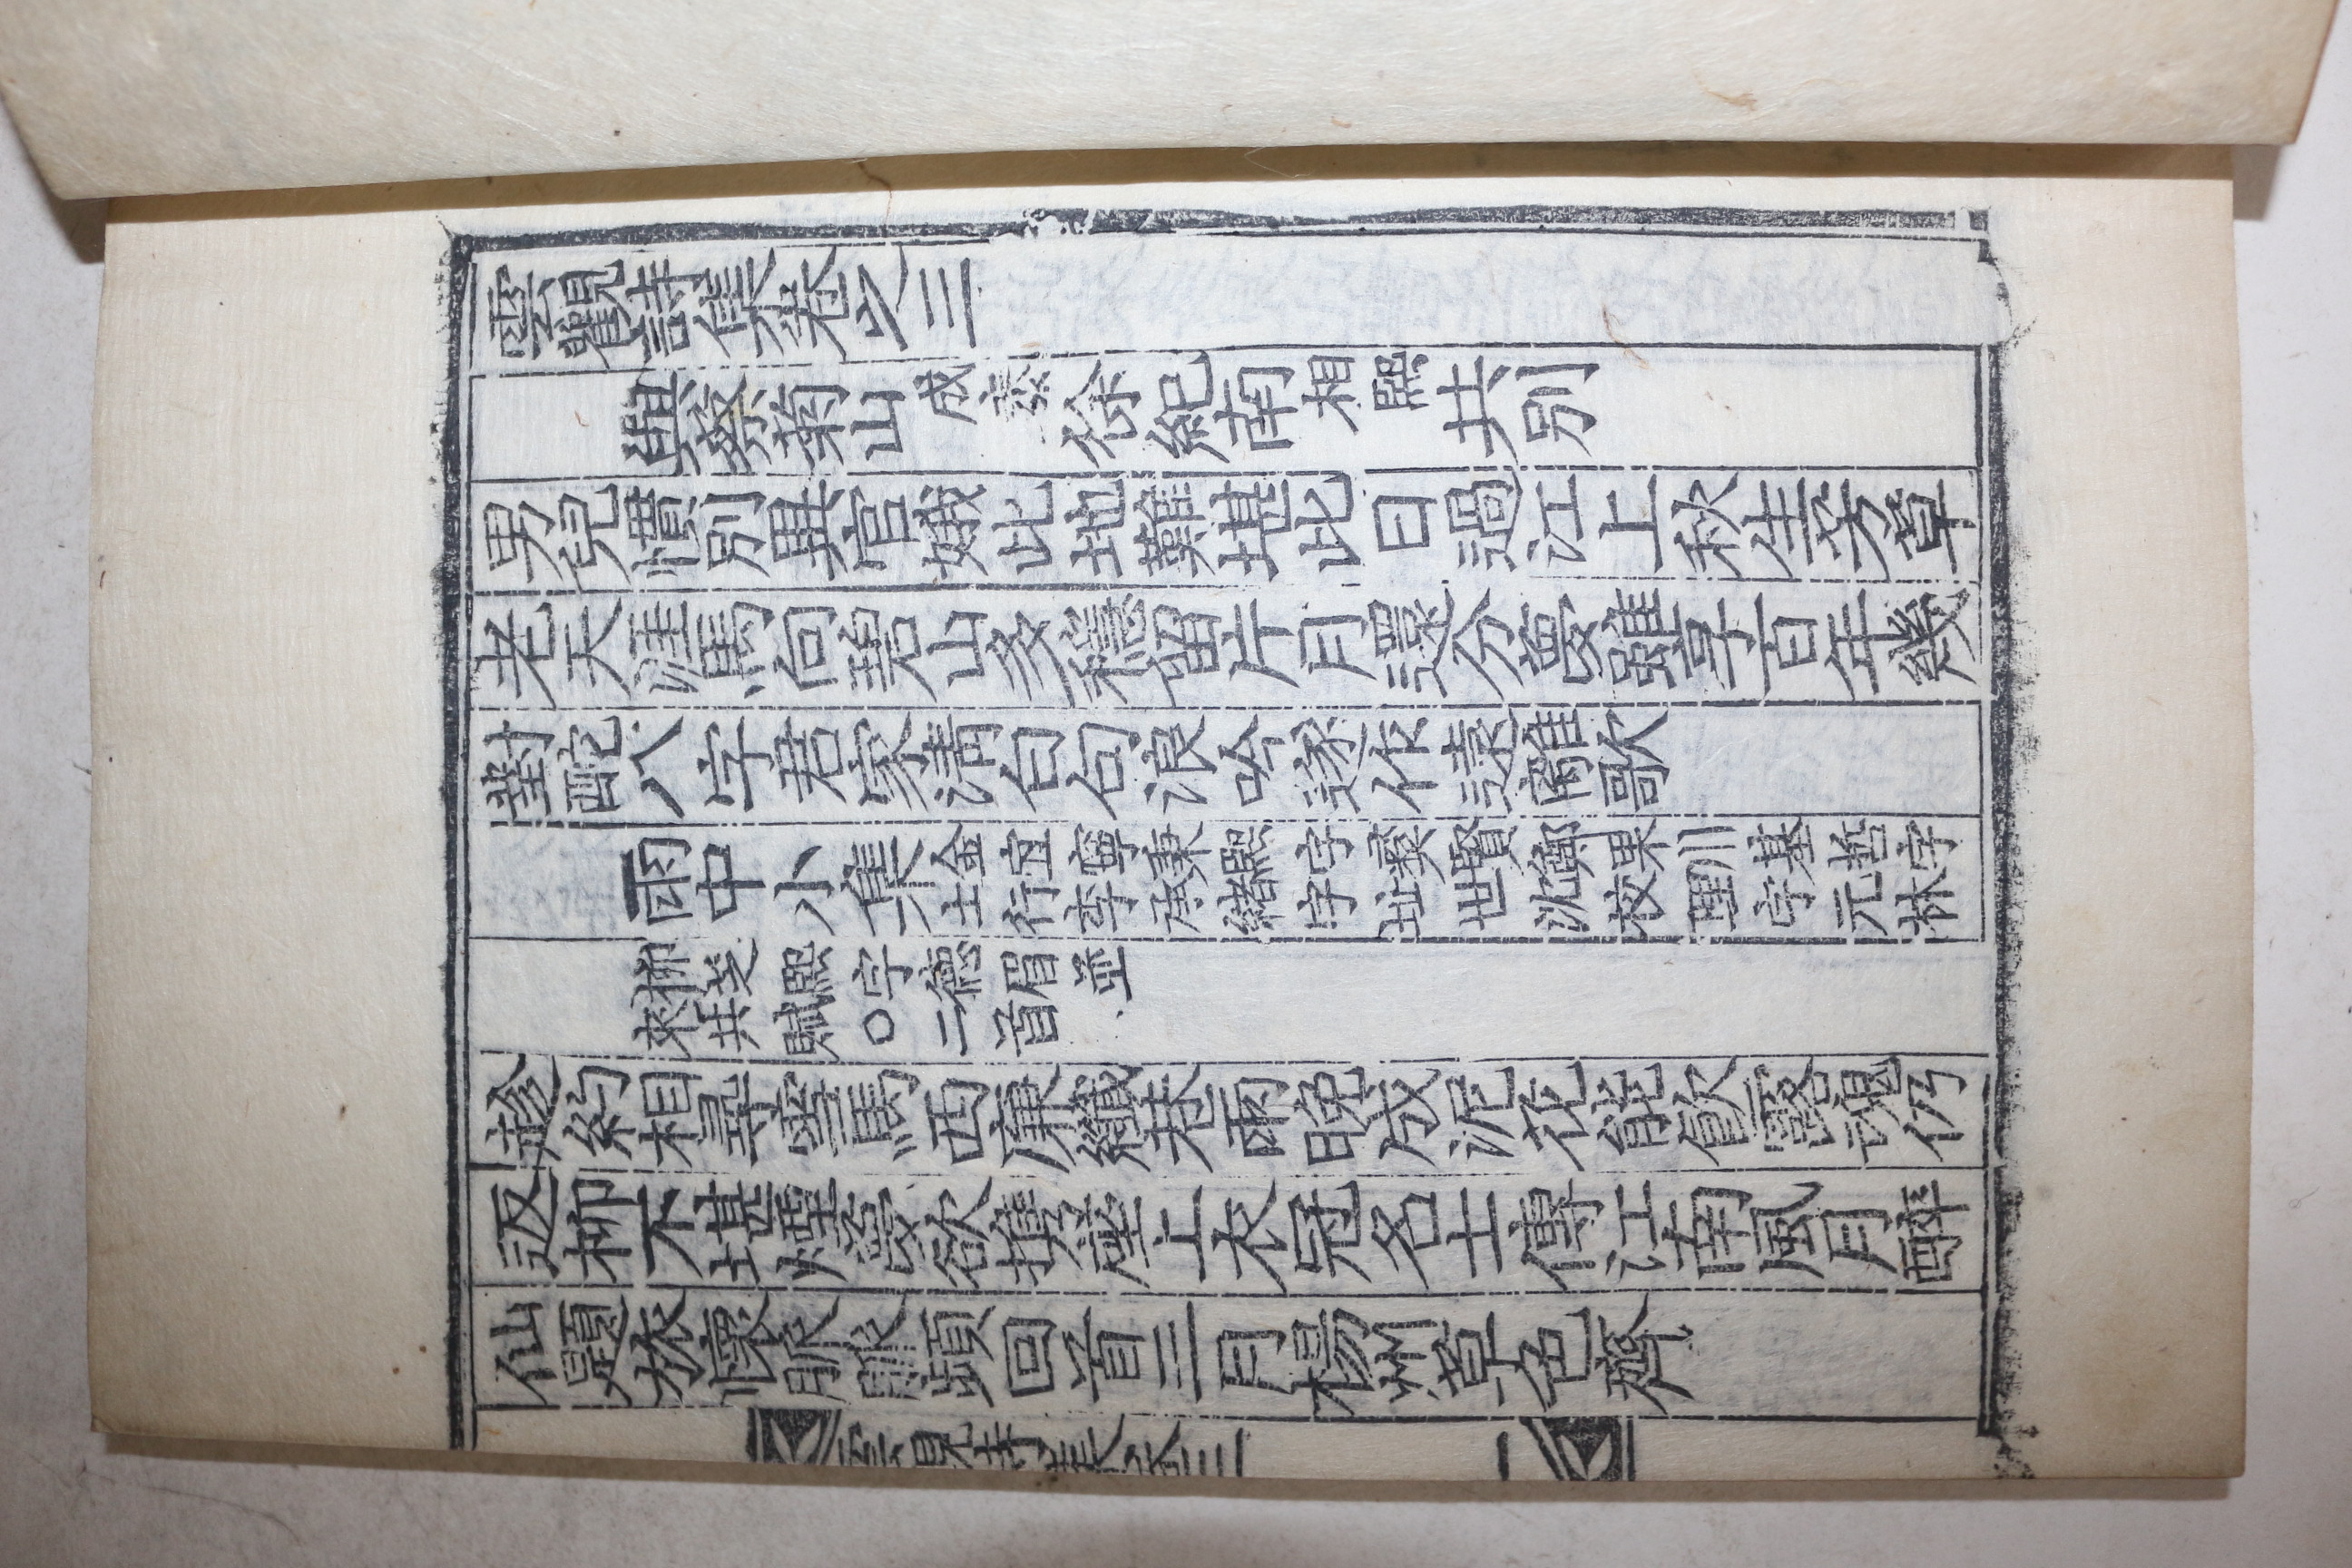 雲觀詩集卷之三
與蔡菊山成泰徐紀南相熙共別
男兒慣別異官娥此地難堪此日過江上秋生芳草
老天涯馬向碧山多穩留片月還分夢雖享百年幾
對酡八字君家淸白句浪吟遂作遠離歌
雨中小集金宜寧秉熙字彜賢鄭果川基哲字
士行李承緖字址世沈校理字元林
柳芝熙字德眉並
來共賦○二首
趁約相尋雪馬西廉纖巷雨晚成泥花能飮露魂仍
返柳不堪煙夢欲携座上衣冠名士傳江南風月醉
仙題旅懷脈脈頻回首三月楊州草色齊
雲觀詩集卷三
一